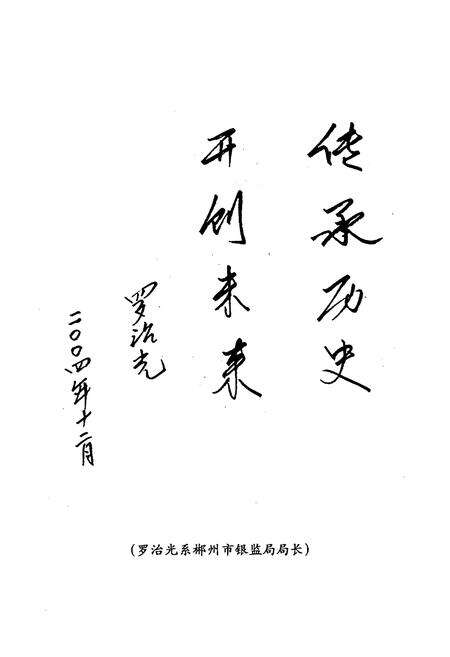 传承历史
开创未来
罗治光
二〇〇四年十二月
（罗治光系郴州市银监局局长）